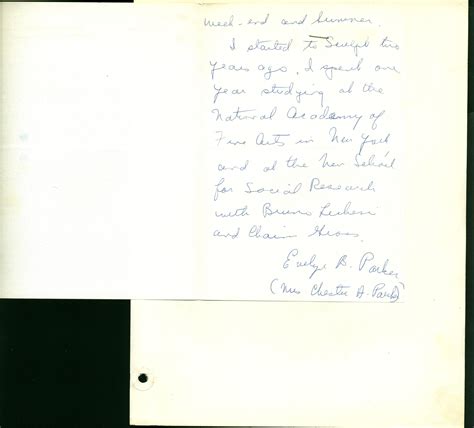 week-end and Summer.
I started to Sculpt two
years ago. I spent one
year studying at the
National Academy of
Fine Arts in New York
and at the New School
for Social Research
with Bruno
and Chaim Gross.
Evelyn B. Parker
(Mrs Chester A. Parker)